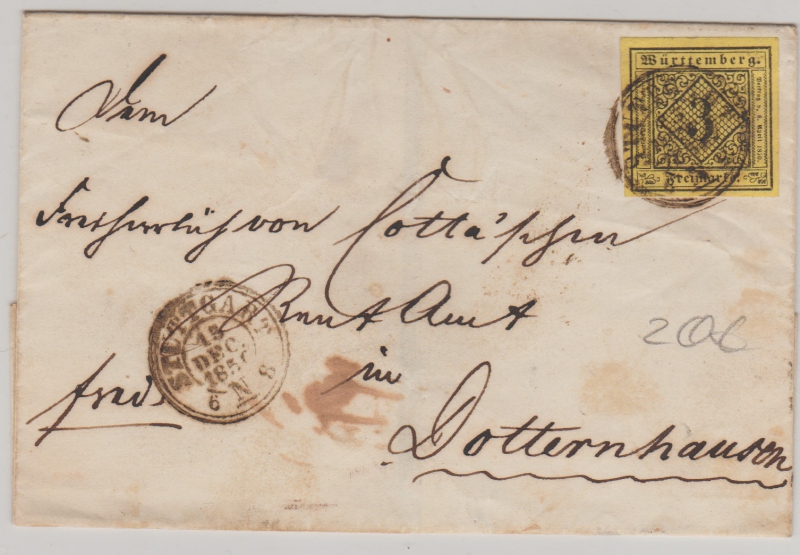 Württemberg.
3
Freimarke.
Dem
Freiherrlich von Cotta'schen
Rent Amt
in
Dotternhausen
frei
STUTTGART
15
DEC.
6 N 8
206